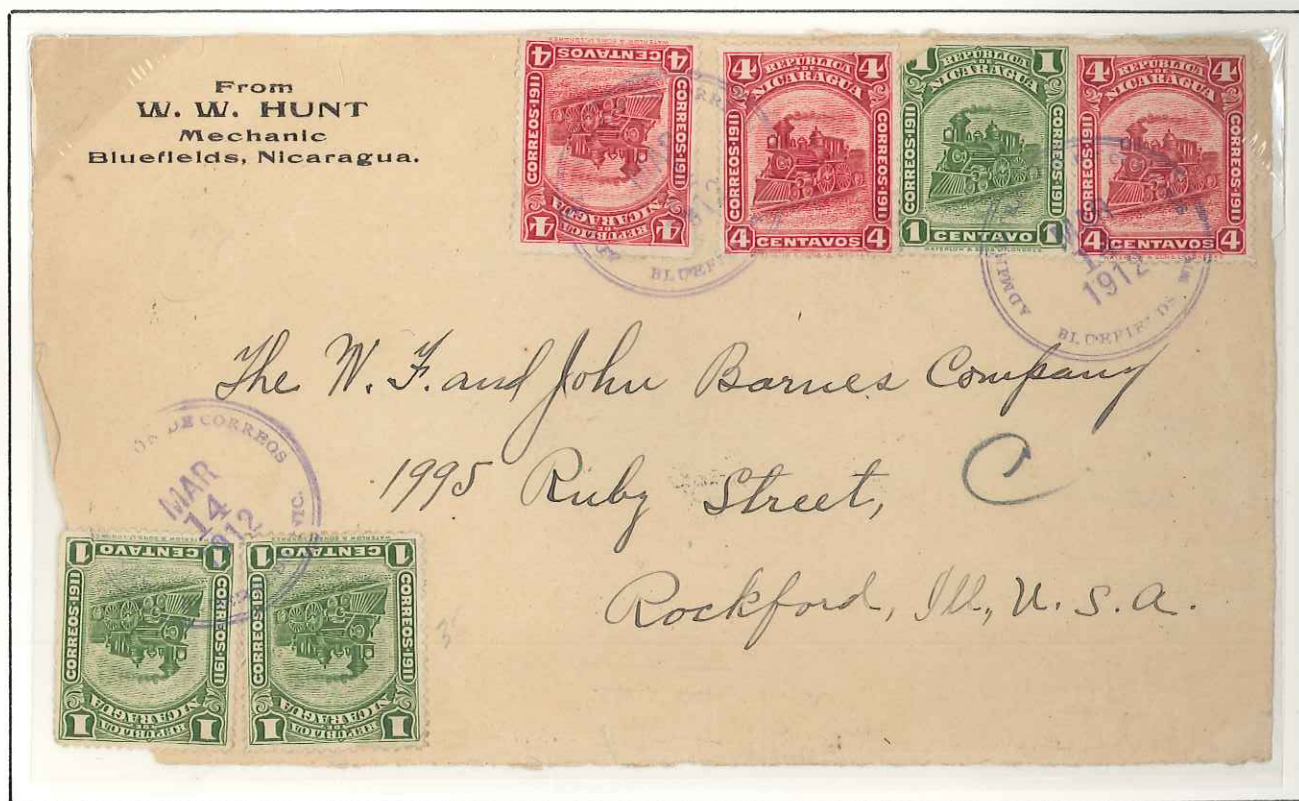 From
W. W. HUNT
Mechanic
Bluefields, Nicaragua.
4 CENTAVOS 4
WATERLOW & SONS LD LONDRES
CORREOS·1911
CORREOS·1911
4 REPUBLICA DE NICARAGUA 4
4 REPUBLICA DE NICARAGUA 4
CORREOS·1911
CORREOS·1911
4 CENTAVOS 4
1 REPUBLICA DE NICARAGUA 1
CORREOS·1911
CORREOS·1911
1 CENTAVO 1
WATERLOW & SONS LD LONDRES
4 REPUBLICA DE NICARAGUA 4
CORREOS·1911
CORREOS·1911
4 CENTAVOS 4
BLUEFI
ADMIN
MAR
1912
BLUEFIELDS
The W. F. and John Barnes Company
1995 Ruby Street, C
Rockford, Ill., U. S. A.
DE CORREOS
MAR
14
1912
1 CENTAVO 1
CORREOS·1911
CORREOS·1911
1 REPUBLICA DE NICARAGUA 1
1 CENTAVO 1
CORREOS·1911
CORREOS·1911
1 REPUBLICA DE NICARAGUA 1